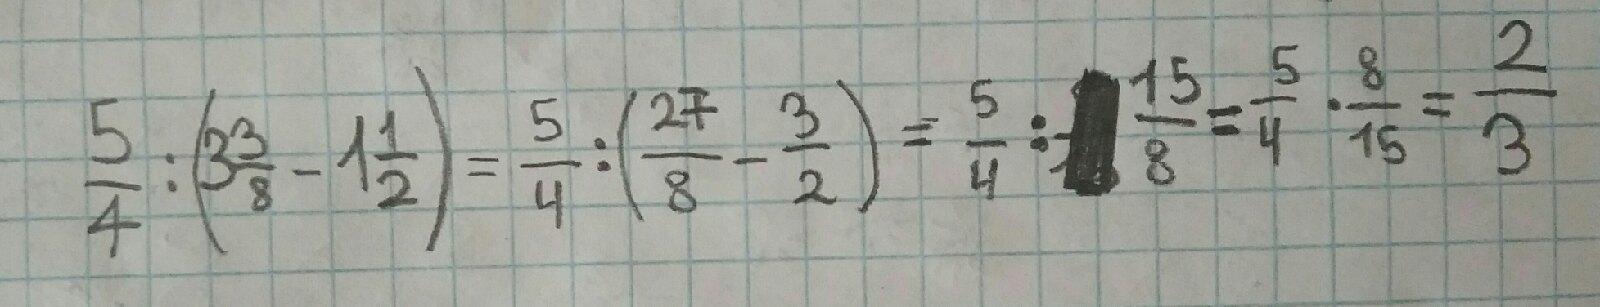 5/4 : (3 3/8 - 1 1/2) = 5/4 : (27/8 - 3/2) = 5/4 : 15/8 = 5/4 · 8/15 = 2/3